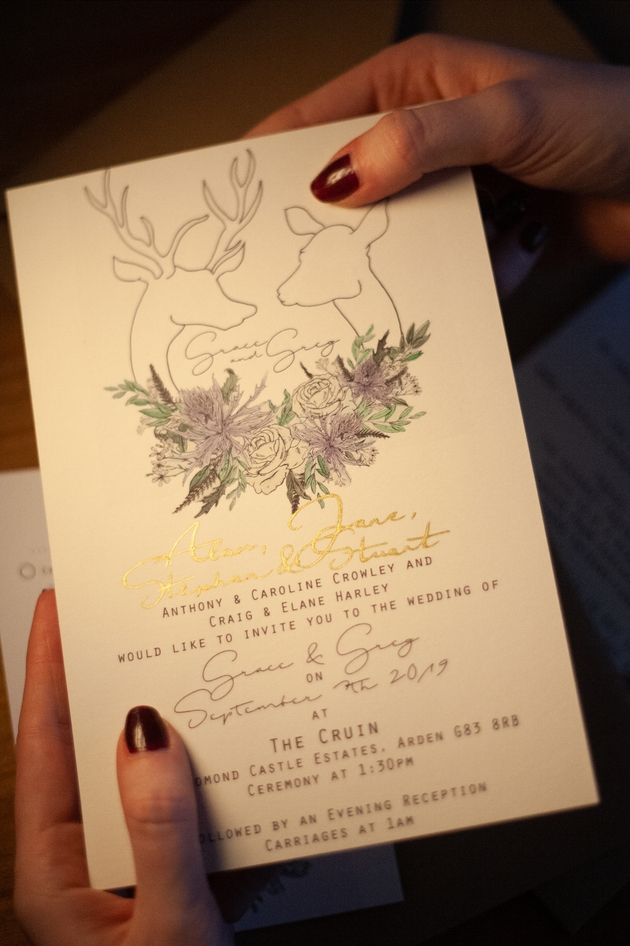 Grace
and Greg
Alan, Jane,
Stephen & Stuart
Anthony & Caroline Crowley and
Craig & Elane Harley
would like to invite you to the wedding of
Grace & Greg
on
September 7th 2019
at
The Cruin
omond Castle Estates, Arden G83 8RB
Ceremony at 1:30pm
ollowed by an Evening Reception
Carriages at 1am